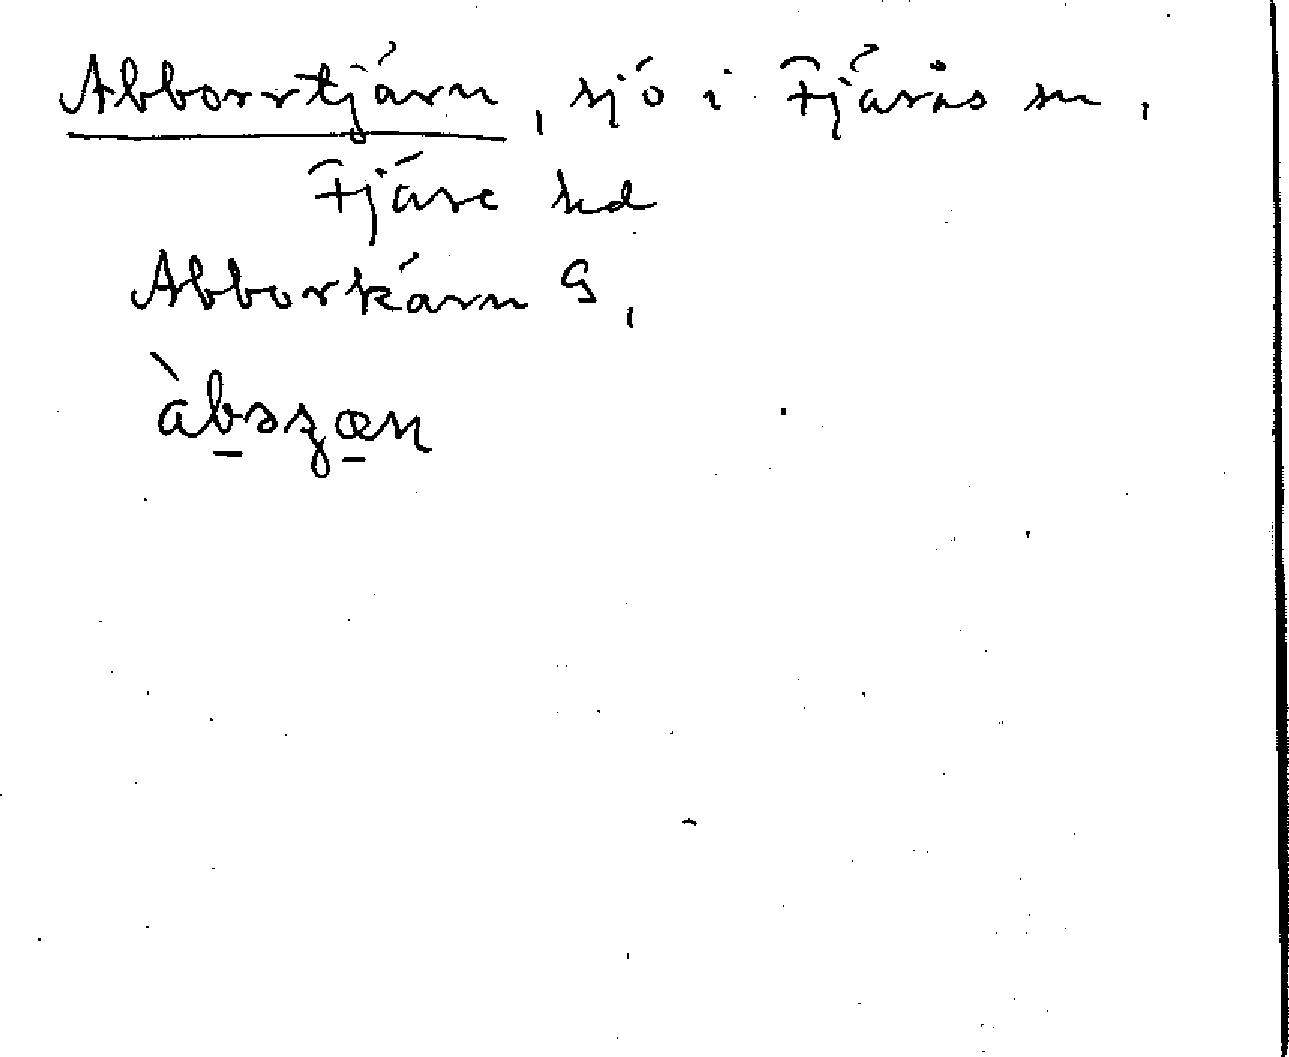 Abborrtjärn, sjö i Fjärås sn,
Fjäre hd
Abborkärn G,
àbəʂæn